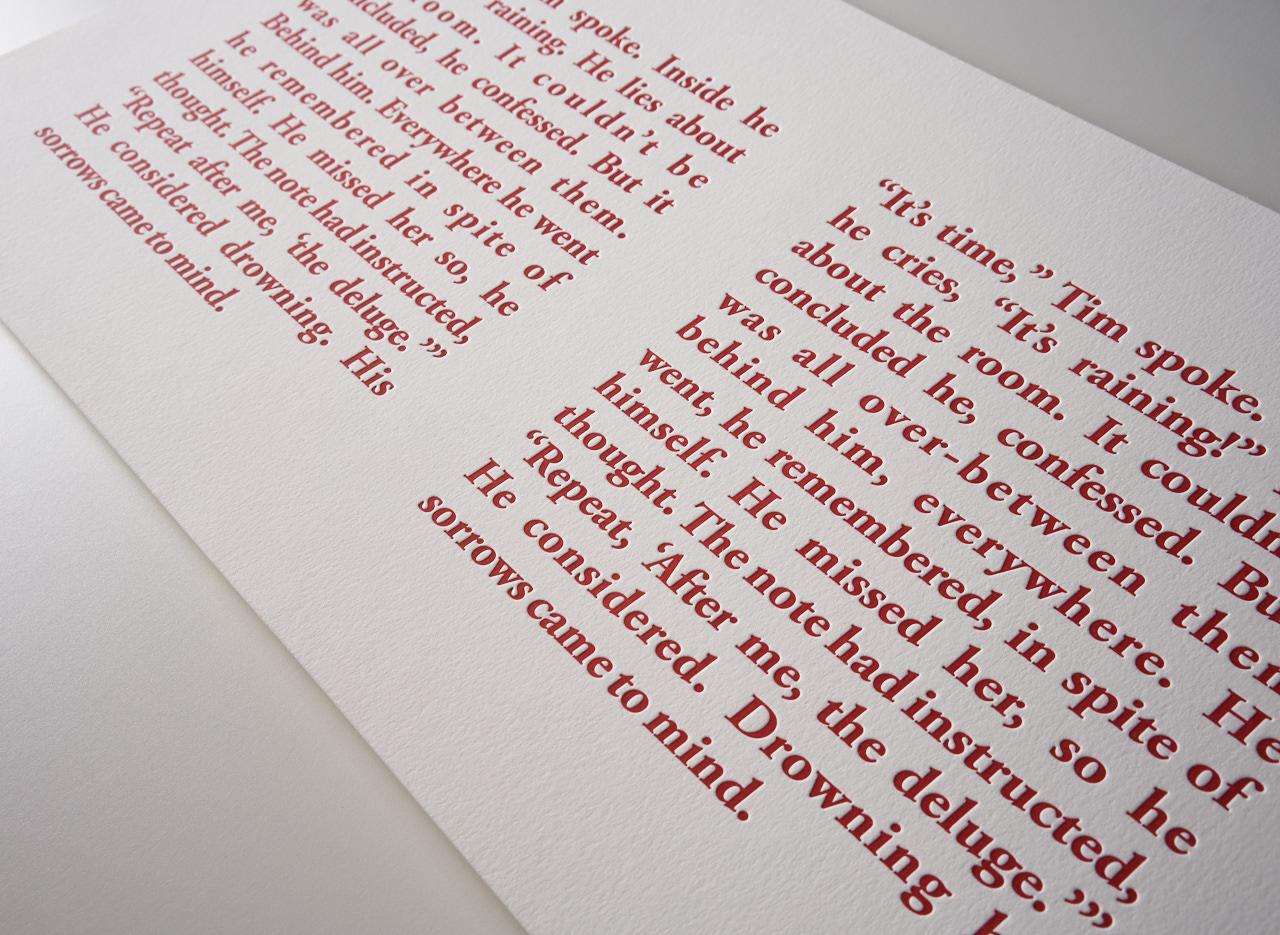 spoke. Inside he
raining. He lies about
room. It couldn't be
concluded, he confessed. But it
was all over between them.
Behind him. Everywhere he went
he remembered in spite of
himself. He missed her so, he
thought. The note had instructed,
“Repeat after me, ‘the deluge.’”
He considered drowning. His
sorrows came to mind.
“It's time,” Tim spoke.
he cries, “It's raining!”
about the room. It couldn
concluded he, confessed. Bu
was all over-between them
behind him, everywhere. He
went, he remembered, in spite of
himself. He missed her, so he
thought. The note had instructed,
“Repeat, ‘After me, the deluge.’”
He considered. Drowning h
sorrows came to mind.